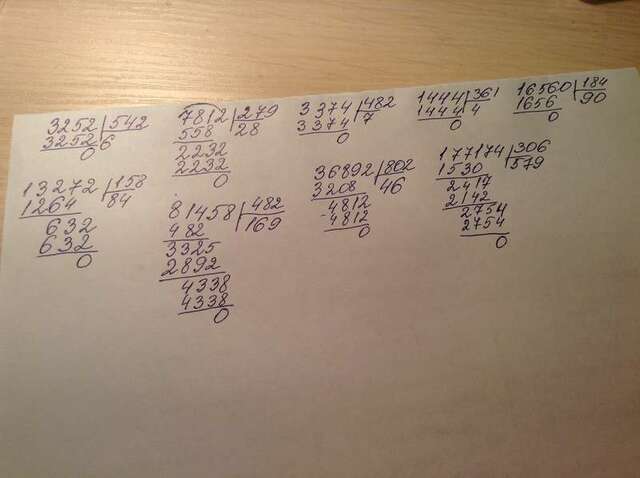 3252 542
3252 6
0
7812 279
558 28
2232
2232
0
3374 482
3374 7
0
1444 361
1444 4
0
16560 184
1656 90
0
13272 158
1264 84
632
632
0
81458 482
482 169
3325
2892
4338
4338
0
36892 802
3208 46
4812
-4812
0
177174 306
1530 579
2417
2142
2754
2754
0